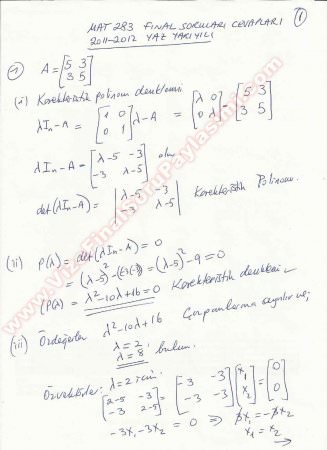 ①
MAT 283 FİNAL SORULARI CEVAPLARI
2011-2012 YAZ YARIYILI
① A = [5 3; 3 5]
(i) Karekteristik polinom denklemi
λIn-A = [1 0; 0 1] λ-A = [λ 0; 0 λ] - [5 3; 3 5]
λIn-A = [λ-5 -3; -3 λ-5] olm
det(λIn-A) = |λ-5 -3; -3 λ-5| Karekteristik Polinom.
(ii) P(λ) = det(λIn-A) = 0
= (λ-5)² - (-3)(-3) = (λ-5)² - 9 = 0
P(λ) = λ²-10λ+16 = 0 Karekteristik denklem
(iii) Özdeğerler λ²-10λ+16 Çarpanlarına ayrılır ve;
λ = 2,
λ = 8 bulunur.
Özvektörler: λ = 2 için;
[2-5 -3; -3 2-5] = [-3 -3; -3 -3] [x₁; x₂] = [0; 0]
-3x₁-3x₂ = 0 ⇒ 3x₁ = -3x₂
x₁ = x₂
→
www.VizeFinalSoruPaylasimi.com